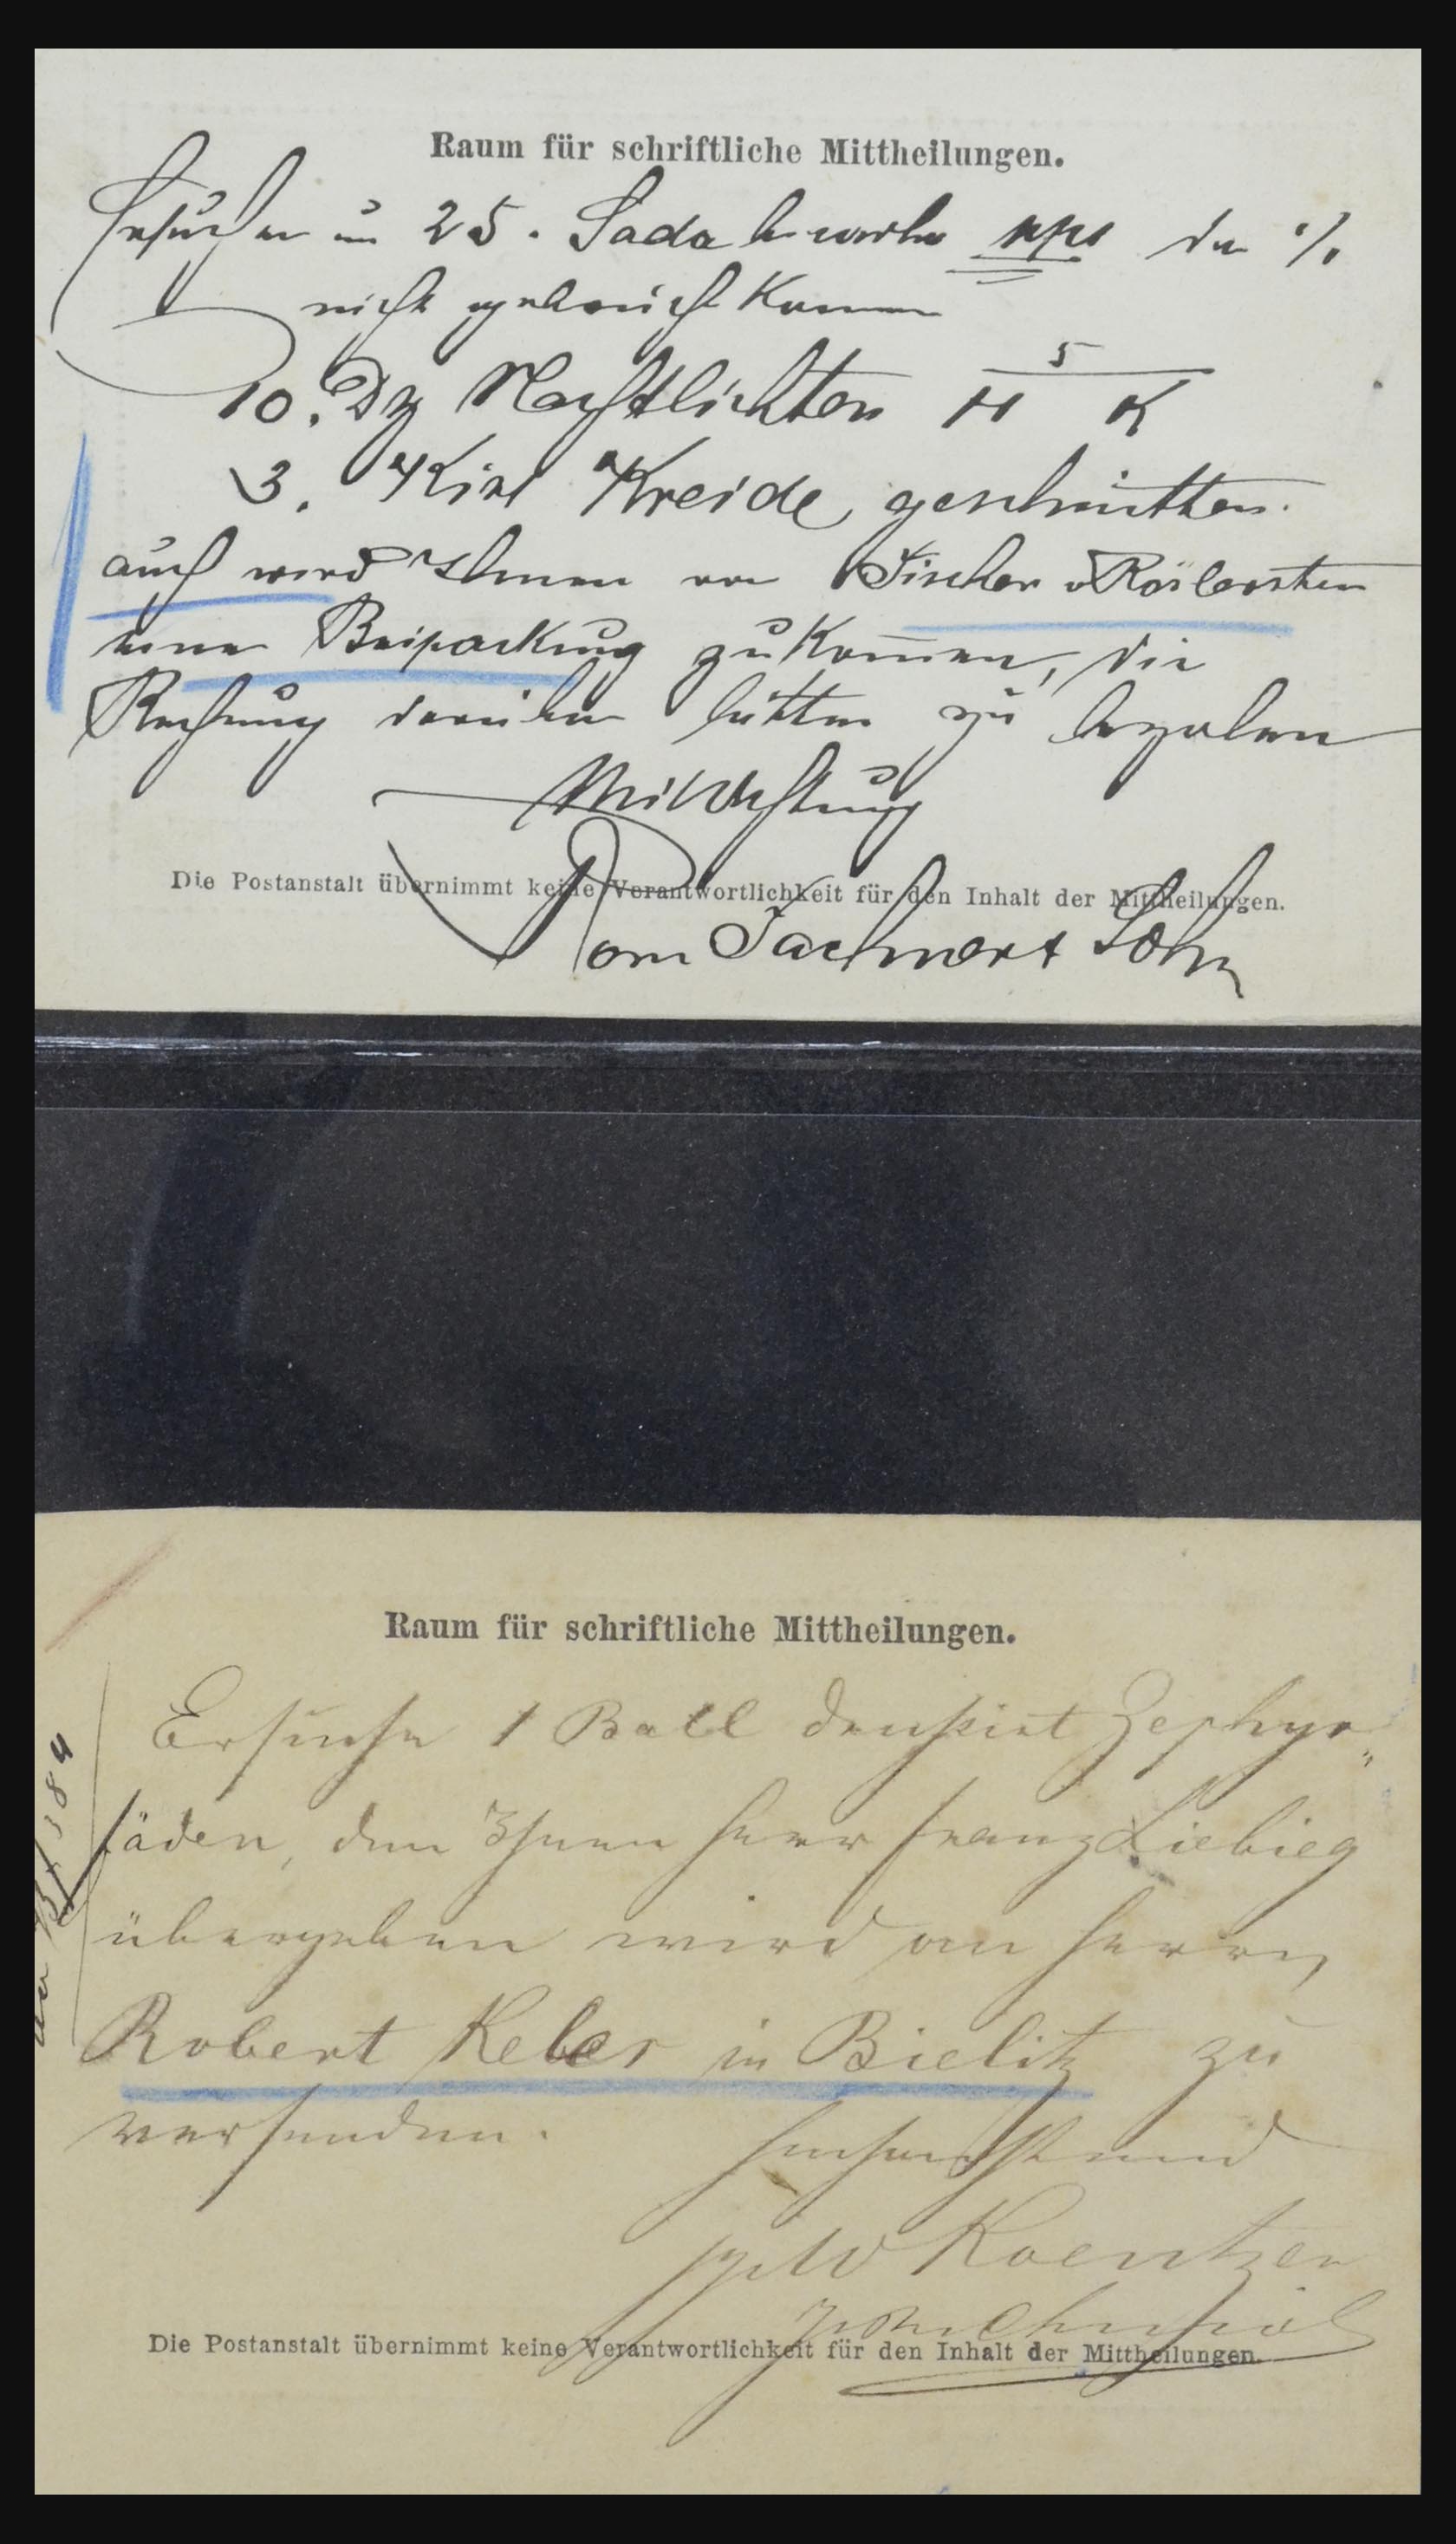 Raum für schriftliche Mittheilungen.
Ersuchen um 25. Soda
nicht gebraucht kommen
10. Dz Nachtlichten 5 H K
3. Kist Kreide geschnitten.
auch wird Ihnen von Fischer
eine Beipackung zukommen, die
Rechnung darüber bitten zu bezalen
Mit Achtung
Die Postanstalt übernimmt keine Verantwortlichkeit für den Inhalt der Mittheilungen.
Sohn
Raum für schriftliche Mittheilungen.
Ersuche 1 Ball Zephyr„
fäden, den Ihnen Herr Franz Liebieg
übergeben wird an Herrn
Robert Keler in Bielitz zu
versenden.
Hochachtend
Die Postanstalt übernimmt keine Verantwortlichkeit für den Inhalt der Mittheilungen.